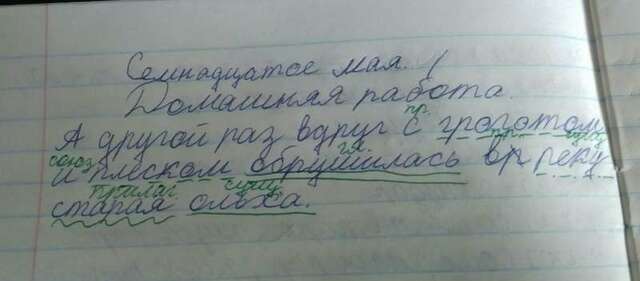 Семнадцатое мая.
Домашняя работа.
пр.
А другой раз вдруг с грохотом
союз гл. пр. сущ.
и плеском обрушилась в реку
прилаг сущ.
старая ольха.